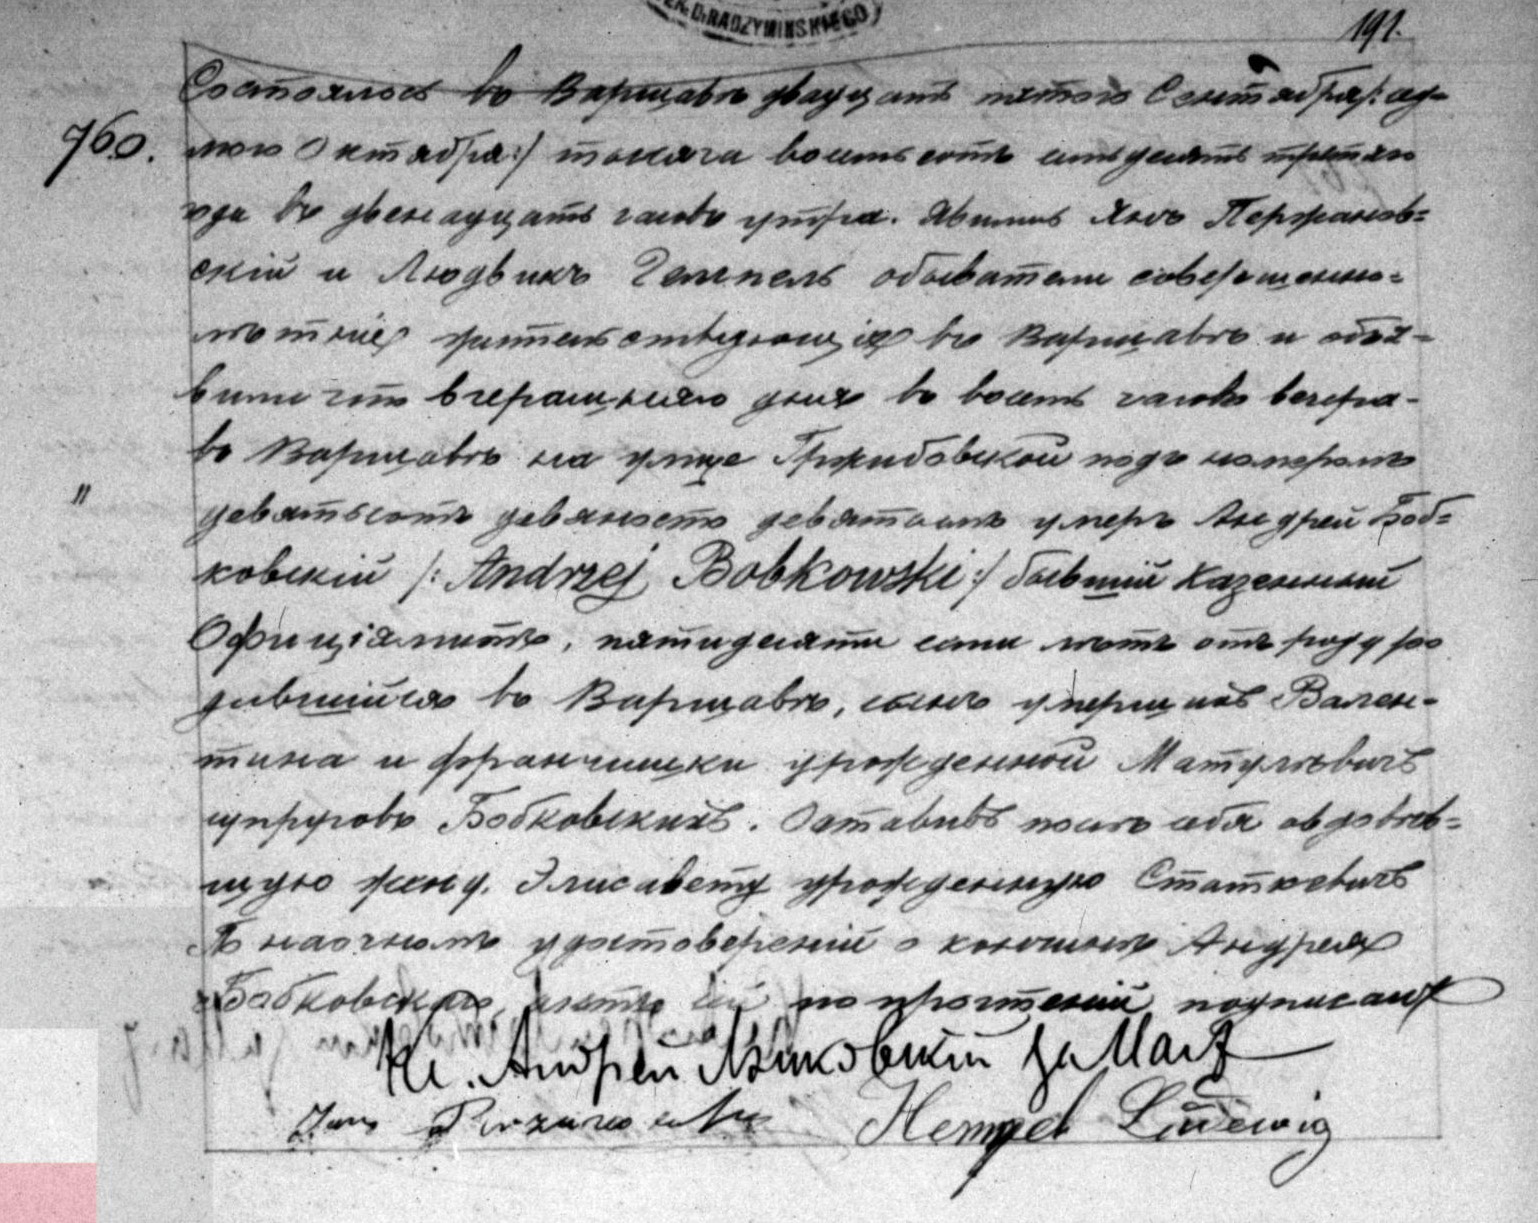 D. RADZYMINSKIEGO
191.
Состоялось въ Варшавѣ двадцать пятого Сентября /: сед=
760.
мого Октября :/ тысяча восемьсотъ семьдесятъ третьяго
года въ двенадцать часовъ утра. Явились Янъ
скій и Людвикъ Гемпель обыватели совершенно=
лѣтніе жительствующіе въ Варшавѣ и объя=
вили что вчерашняго дня въ восемь часовъ вечера
въ Варшавѣ на улице Гржибовской подъ номеромъ
"
девятьсотъ девяносто девятымъ умеръ Андрей Боб=
ковскій /: Andrzej Bobkowski :/ бывшій Казенный
Оффиціялистъ, пятидесяти семи лѣтъ отъ роду ро
дившійся въ Варшавѣ, сынъ умершихъ Вален-
тина и Францишки урожденной Матулевичъ
супруговъ Бобковскихъ. Оставивъ послѣ себя овдовѣв=
шую жену Элисавету урожденную Статкевичъ
По наочномъ удостовереніи о кончинѣ Андрея
Бобковского, актъ сей по прочтеніи подписанъ
Кс. Андрей
Jan
Hempel Ludewig